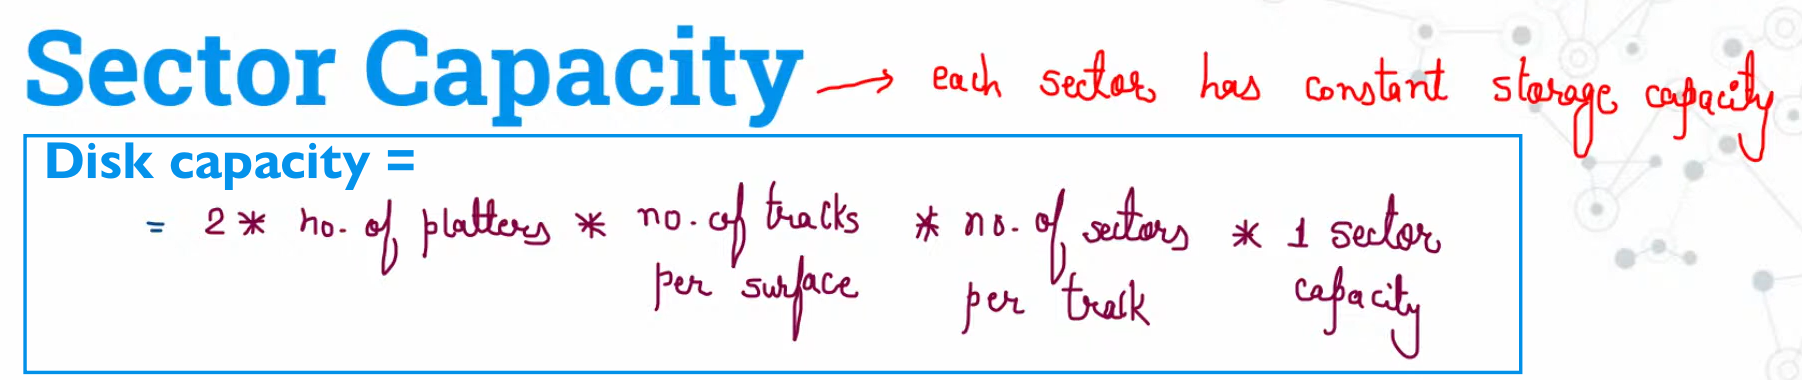 Sector Capacity → each sector has constant storage capacity
Disk capacity =
= 2 * no. of platters * no. of tracks * no. of sectors * 1 sector
per surface per track capacity